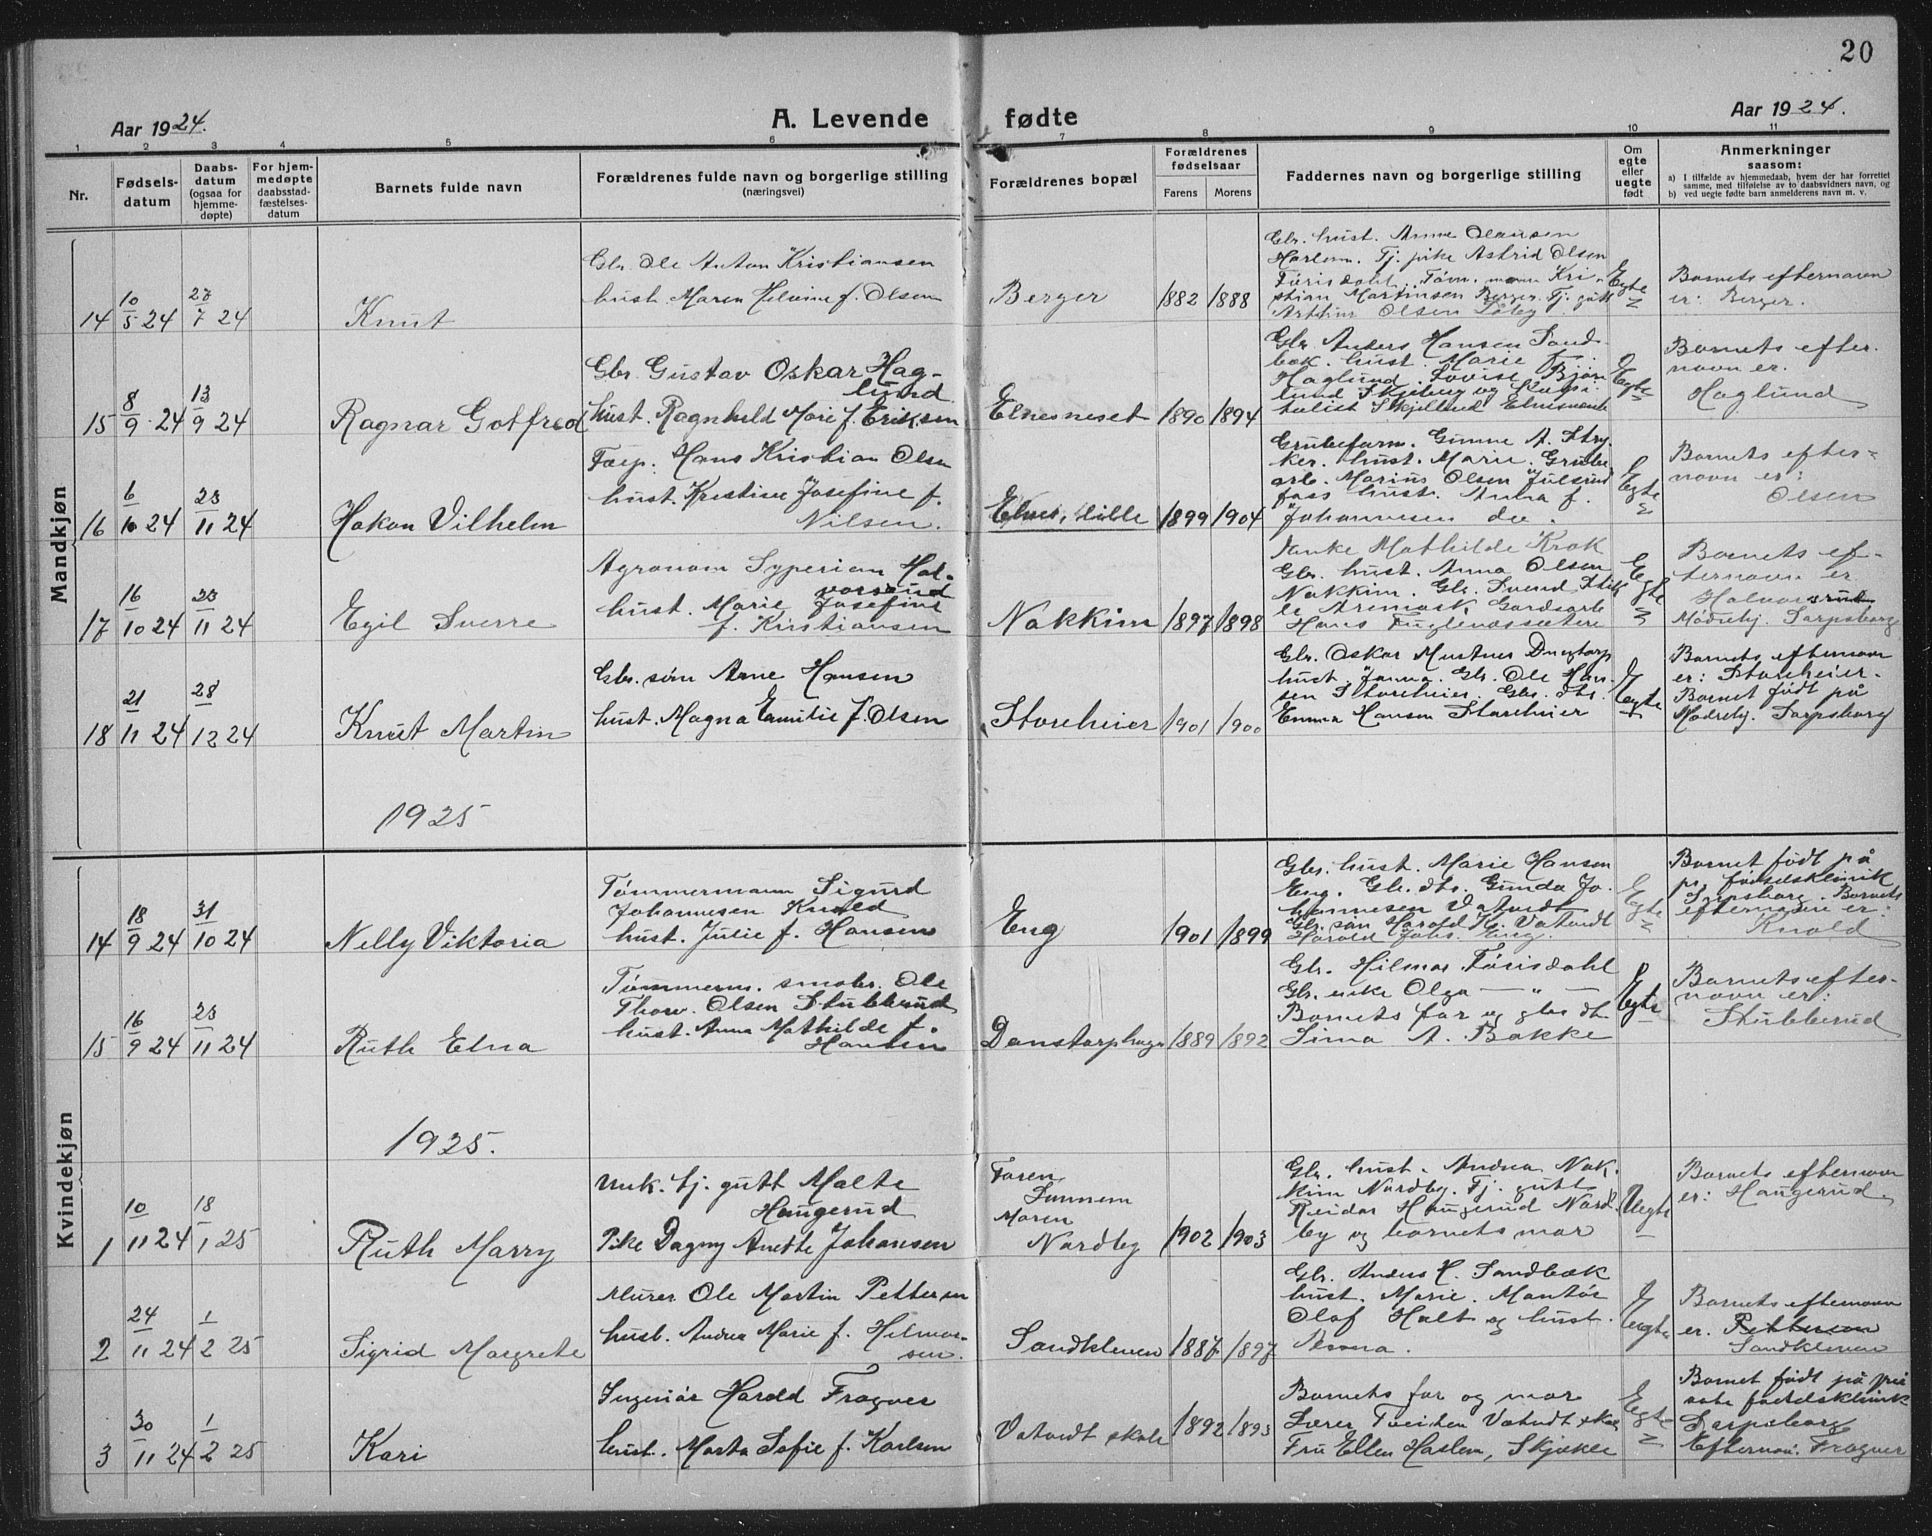 20
Aar 1924.
A. Levende fødte
Aar 1924.
1 2 3 4 5 6 7 8 9 10 11
Nr.
Fødsels-
datum
Daabs-
datum
(ogsaa for
hjemme-
døpte)
For hjem-
medøpte
daabsstad-
fæstelses-
datum
Barnets fulde navn
Forældrenes fulde navn og borgerlige stilling
(næringsvei)
Forældrenes bopæl
Forældrenes
fødselsaar
Farens Morens
Faddernes navn og borgerlige stilling
Om
egte
eller
uegte
født
Anmerkninger
saasom:
a) I tilfælde av hjemmedaab, hvem der har forrettet
samme, med tilføielse av to daabsvidners navn, og
b) ved uegte fødte barn anmelderens navn m. v.
Mandkjøn
14
10/5 24
27/7 24
Knut
Gbr. Ole Anton Kristiansen
hust. Maren Helvine f. Olsen
Berger
1882 1888
Gbr. hust. Anne Olausen
Harlem. Tj. pike Astrid Olsen
Tørisdahl. Tøm. mann Kri-
stian Martinsen Berger. Tj. gutt
Arthur Olsen
Egte
Barnets efternavn
er: Berger.
15
8/9 24
13/9 24
Ragnar Gotfred
Gbr. Gustav Oskar Hag-
lund
hust. Ragnhild Marie f. Eriksen
Elnesneset
1890 1894
Gbr. Anders Hansen Sand-
bæk. hust. Marie f.
Haglund. Lovise Bjør
lund Skjeberg og
Skjellund Elnesneset
Egte
Barnets efter-
navn er.
Haglund
16
6/10 24
23/11 24
Hakon Vilhelm
Faép. Hans Kristian Olsen
hust. Kristine Josefine f.
Nilsen.
Elnes, lille
1899 1904
Grubeform. Gunne A. Stry-
ker. hust. Marie. Grube
arb. Marius Olsen Julsrud
foss hust. Anna f.
Johannesen do.
Egte
Barnets efter-
navn er:
Olsen
17
16/10 24
23/11 24
Egil Sverre
Agronom Syperian Hal-
vorsrud
hust. Marie Josefine
f. Kristiansen
Nakkim
1897 1898
Enke Mathilde Krok
Gbr. hust. Anna Olsen
Nakkim. Gbr. Svend Stik
le Aremark Gardsarb.
Hans Fuglenæssætere
Egte
Barnets ef-
ternavn er
Halvorsrud
Mødrehj. Sarpsborg
18
21/11 24
28/12 24
Knut Martin
Gbr. søn Arne Hansen
hust. Magna Emilie f. Olsen
Storeheier
1901 1900
Gbr. Oskar Mustner
hust. Janna. Gbr. Ole Han-
sen Storeheier. Gbr. dtr.
Emma Hansen Storeheier
Egte
Barnets efternavn
er: Storeheier.
Barnet født på
Mødrehj. Sarpsborg
1925
Kvindekjøn
14
18/9 24
31/10 24
Nelly Viktoria
Tømmermann Sigurd
Johannesen Knold
hust. Julie f. Hansen
Eng
1901 1899
Gbr. hust. Marie Hansen
Eng. Gbr. dtr. Gunda Jo-
hannesen Vatvedt
Gbr. søn Harold Kr. Vatvedt
Harold Johs. Eng.
Egte
Barnet født på
pr. fødselsklinik
Sarpsborg. Barnets
efternavn er:
Knold
15
16/9 24
23/11 24
Ruth Elna
Tømmerm. småbr. Ole
Thorv. Olsen Stubberud
hust. Anna Mathilde f.
Hansen
Danstorphagen
1889 1892
Gbr. Hilmar Tørisdahl
Gbr. enke Olga — " —
Barnets far og gbr dtr.
Sima A. Bakke
Egte
Barnets efter-
navn er:
Stubberud
1925.
1
10/11 24
18/1 25
Ruth Marry
Unk. tj. gutt Malte
Haugerud
Pike Dagny Anethe Johansen
Faren
Sunnem
Moren
Nordby
1902 1903
Gbr. hust. Andrea Nak-
kim Nordby. Tj. gutt
Reidar Haugerud Nord-
by og barnets mor
Uegte
Barnets efternavn
er: Haugerud
2
24/11 24
1/2 25
Sigrid Margrete
Murer Ole Martin Pettersen
hust. Andrea Marie f. Hilmar-
sen.
Sandkleven
1887 1897
Gbr. Anders H. Sandbæk
hust. Marie. Montör
Olaf Holt og hust.
Asvora.
Egte
Barnets efternavn
er. Pettersen
Sandkleven
3
30/11 24
1/2 25
Kari
Ingeniør Harold Fragner
hust. Marta Sofie f. Karlsen
Vatvedt skole
1892 1893
Barnets far og mor
Lærer Tveiten Vatvedt skole
Fru Ellen Haslem, Skjækle
Egte
Barnet født på pri
vate fødselsklinik
Sarpsborg
Efternavn. Fragner